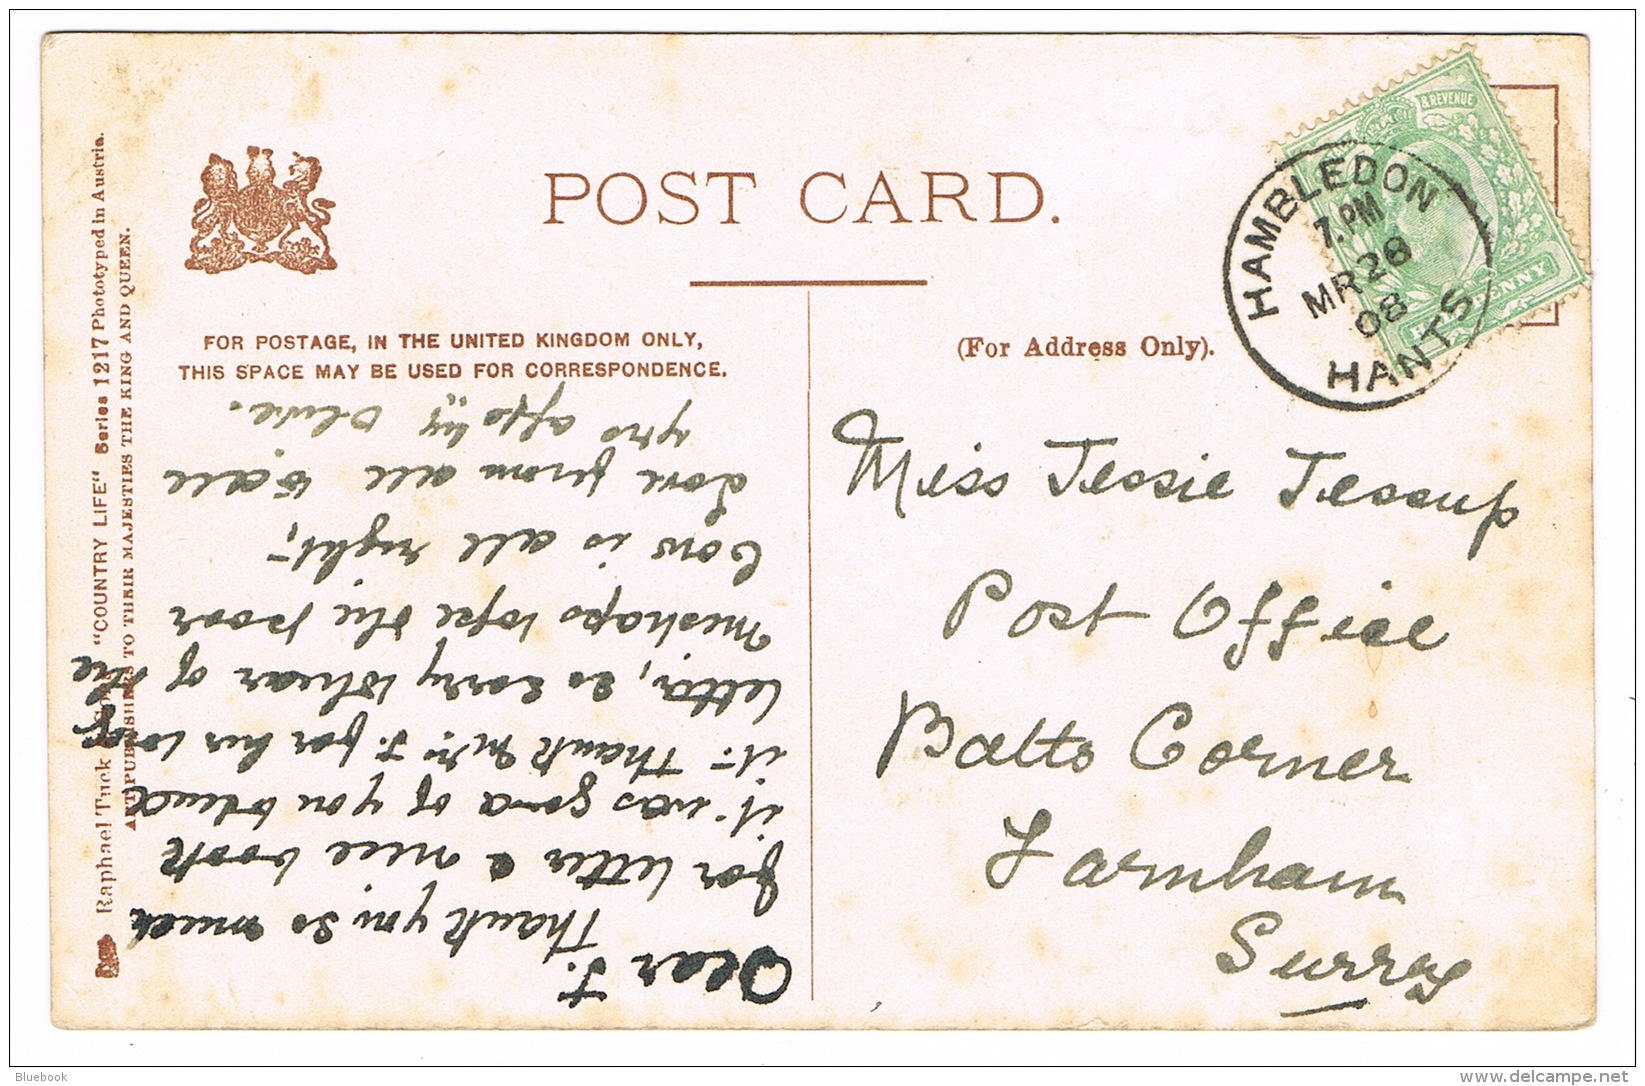 POST CARD.
FOR POSTAGE, IN THE UNITED KINGDOM ONLY,
THIS SPACE MAY BE USED FOR CORRESPONDENCE.
(For Address Only).
& REVENUE
HALFPENNY
HAMBLEDON
7. PM
MR 28
08
HANTS
Miss Jessie Jessup
Post Office
Batts Corner
Farnham
Surrey
Dear J.
Thank you so much
for letter a nice book
it was good of you
it – Thank Mr J. for his long
letter, so sorry to hear of the
mishaps hope the poor
cow is all right,–
Love from all to all
yrs affly Olive.
Raphael Tuck & Sons' "COUNTRY LIFE" Series 1217 Phototyped in Austria.
ART PUBLISHERS TO THEIR MAJESTIES THE KING AND QUEEN.
Bluebook
delcampe.net